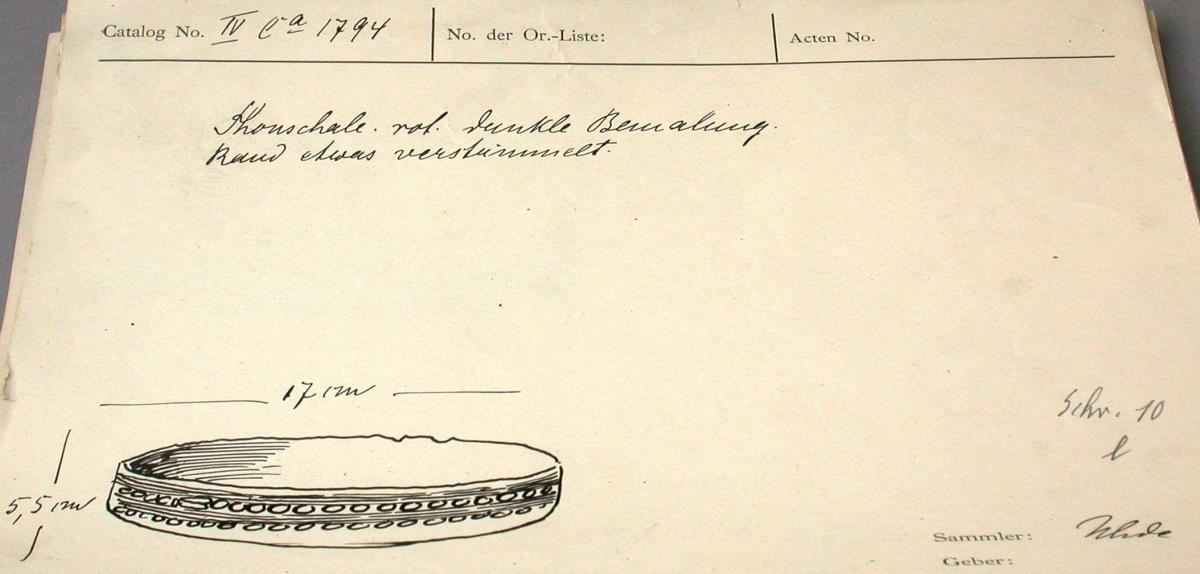 Catalog No. IV Ca 1794 No. der Or.-Liste: Acten No.
Thonschale. rot. dunkle Bemalung.
Rand etwas verstümmelt.
17 cm
5,5 cm
Schr. 10
l
Sammler: Uhde
Geber: